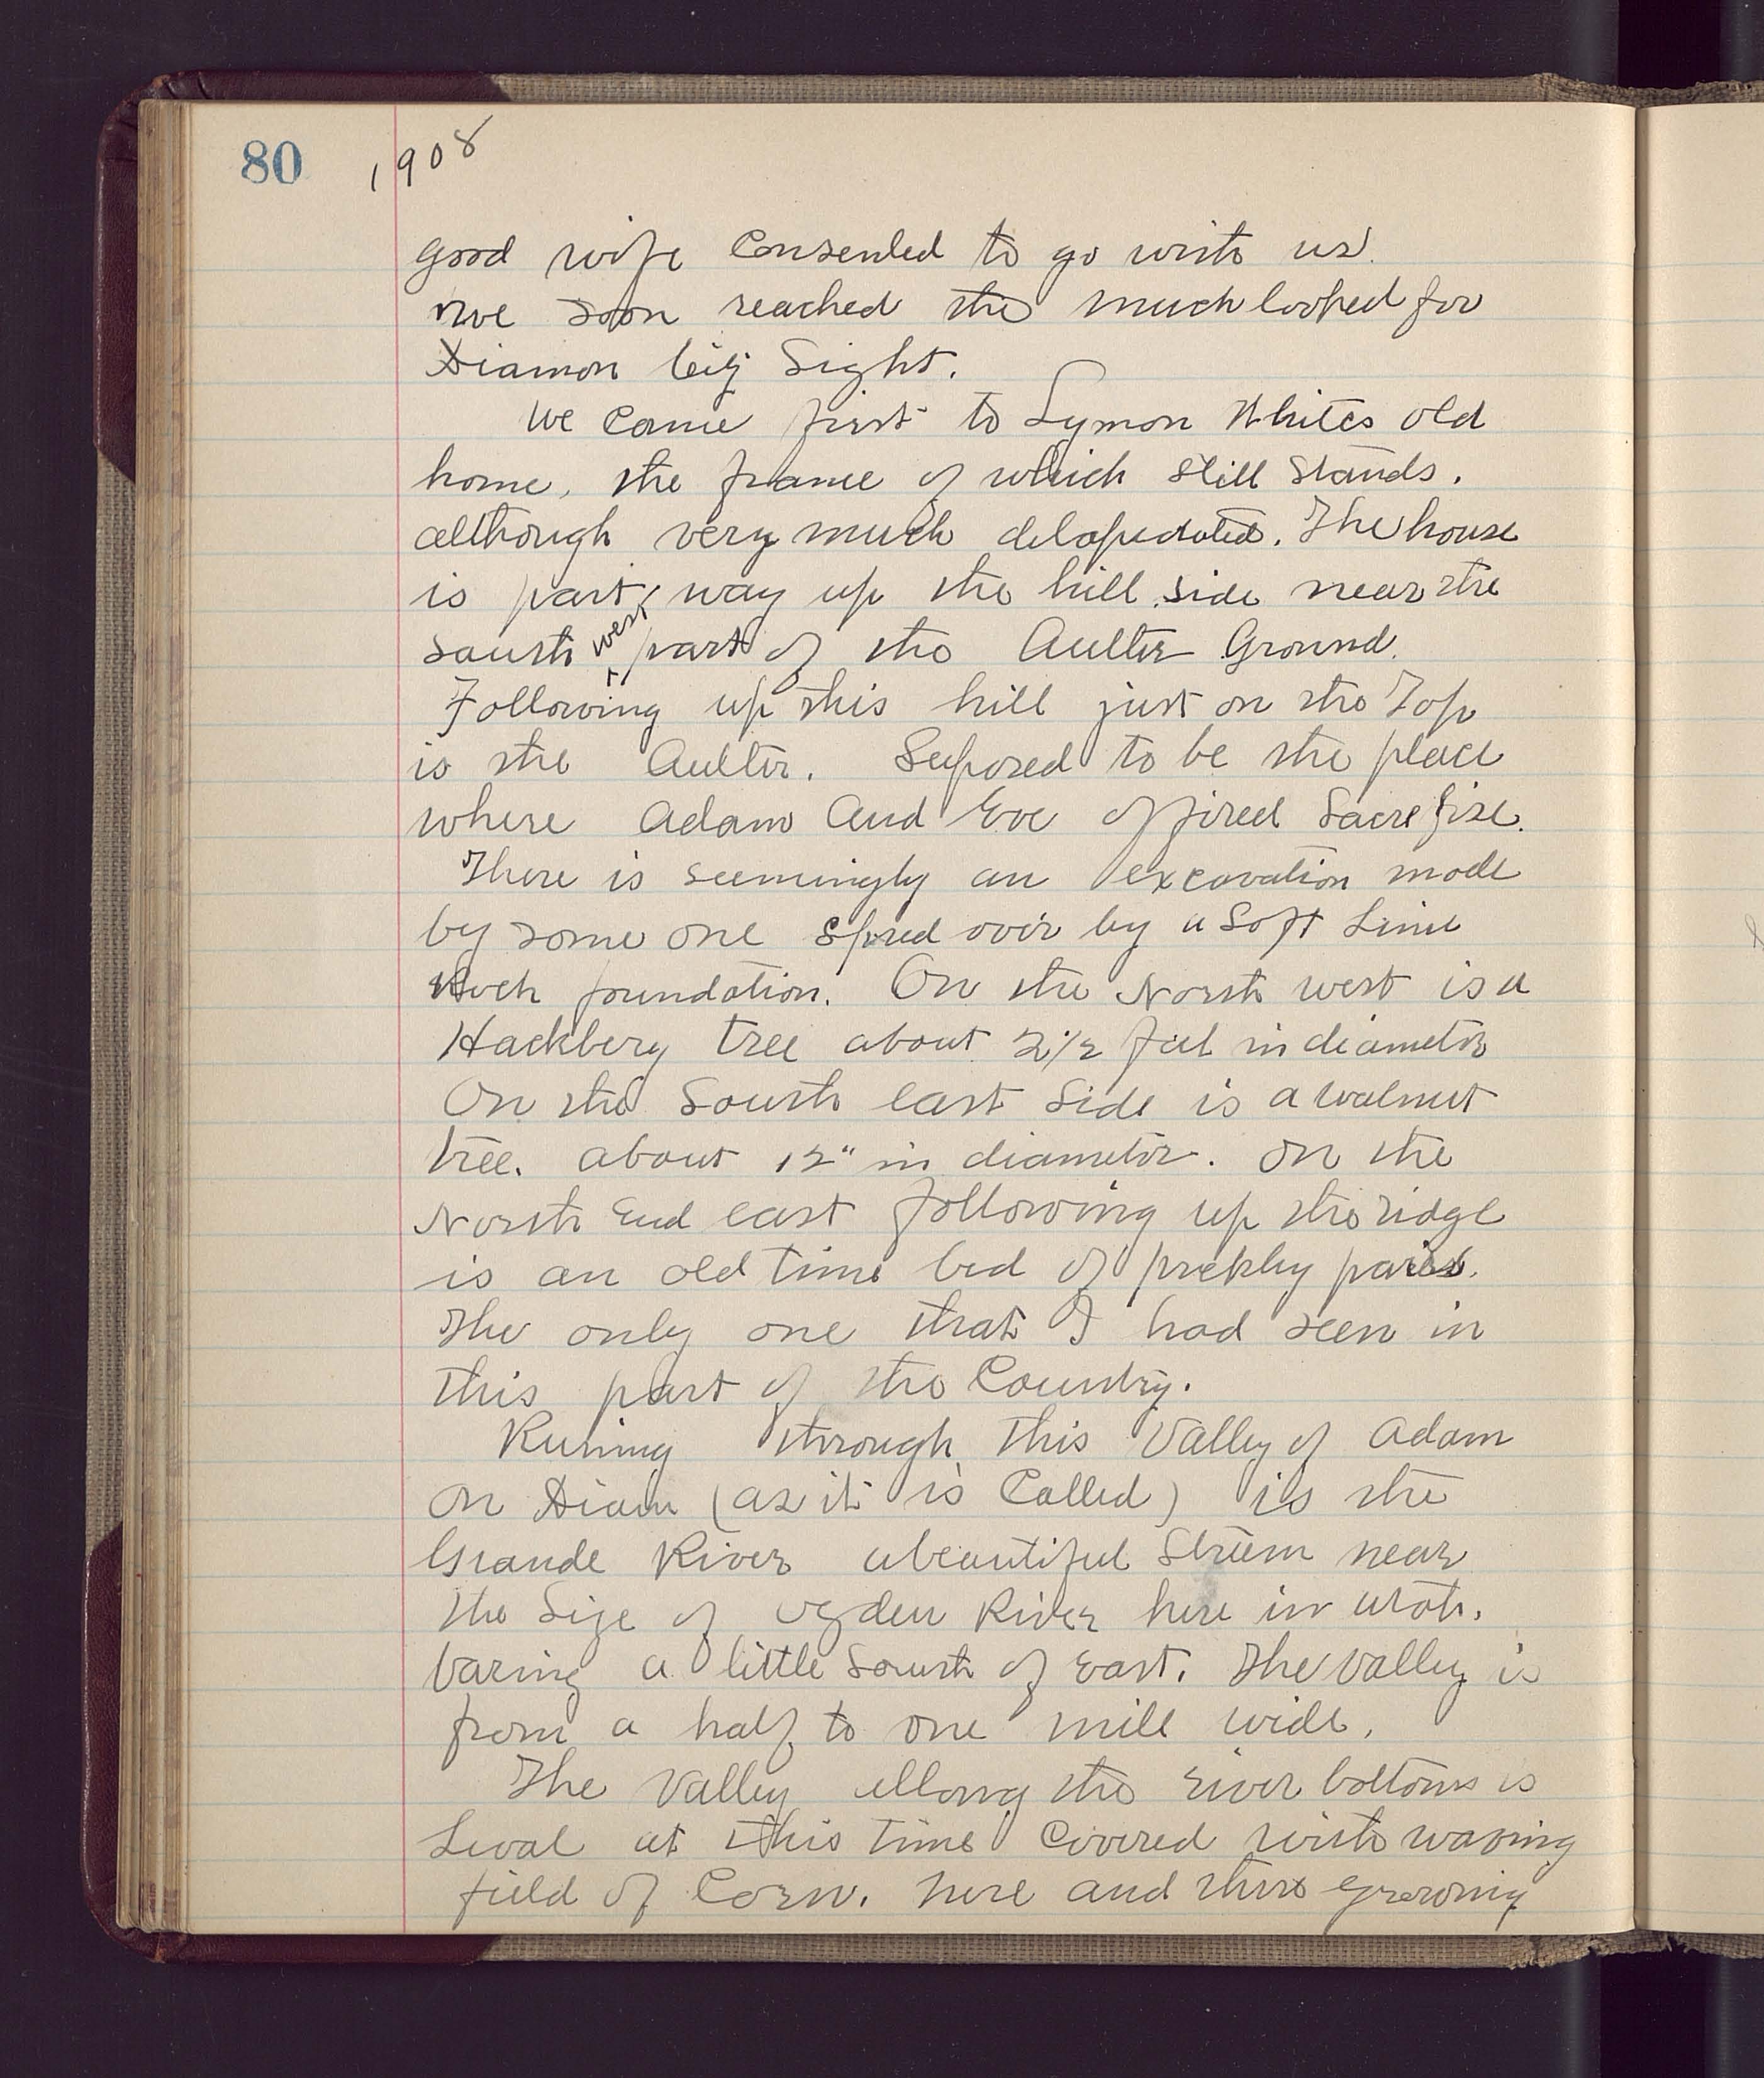 80 1908
good wife Consented to go with us.
we soon reached the much looked for
Diamon big Sight.
We Came first to Lymon Whites old
home, the frame of which still stands,
although very much delapedated. The house
is part way up the hill side near the
South west part of the Aulter Ground.
Following up this hill just on the Top
is the Aulter. Suposed to be the place
where Adam And Eve offired Sacrefise.
There is seemingly an excavation made
by some one spred over by a Soft Lime
Rock foundation. On the North west is a
Hackbery tree about 2 1/2 feet in diameter
On the South east Side is a walnut
tree. about 12" in diameter. On the
North End east following up the ridge
is an old time bed of prekly pares.
The only one that I had seen in
this part of the Country.
Runing through this Valley of Adam
On Diam (as it is Called) is the
Grande River a beautiful Streem near
the Size of Ogden River here in Utah.
baring a little South of East. The Valley is
from a half to one mile wide.
The Valley allong the river bottoms is
Leval at this time Covered with waving
field of Corn. here and there growing